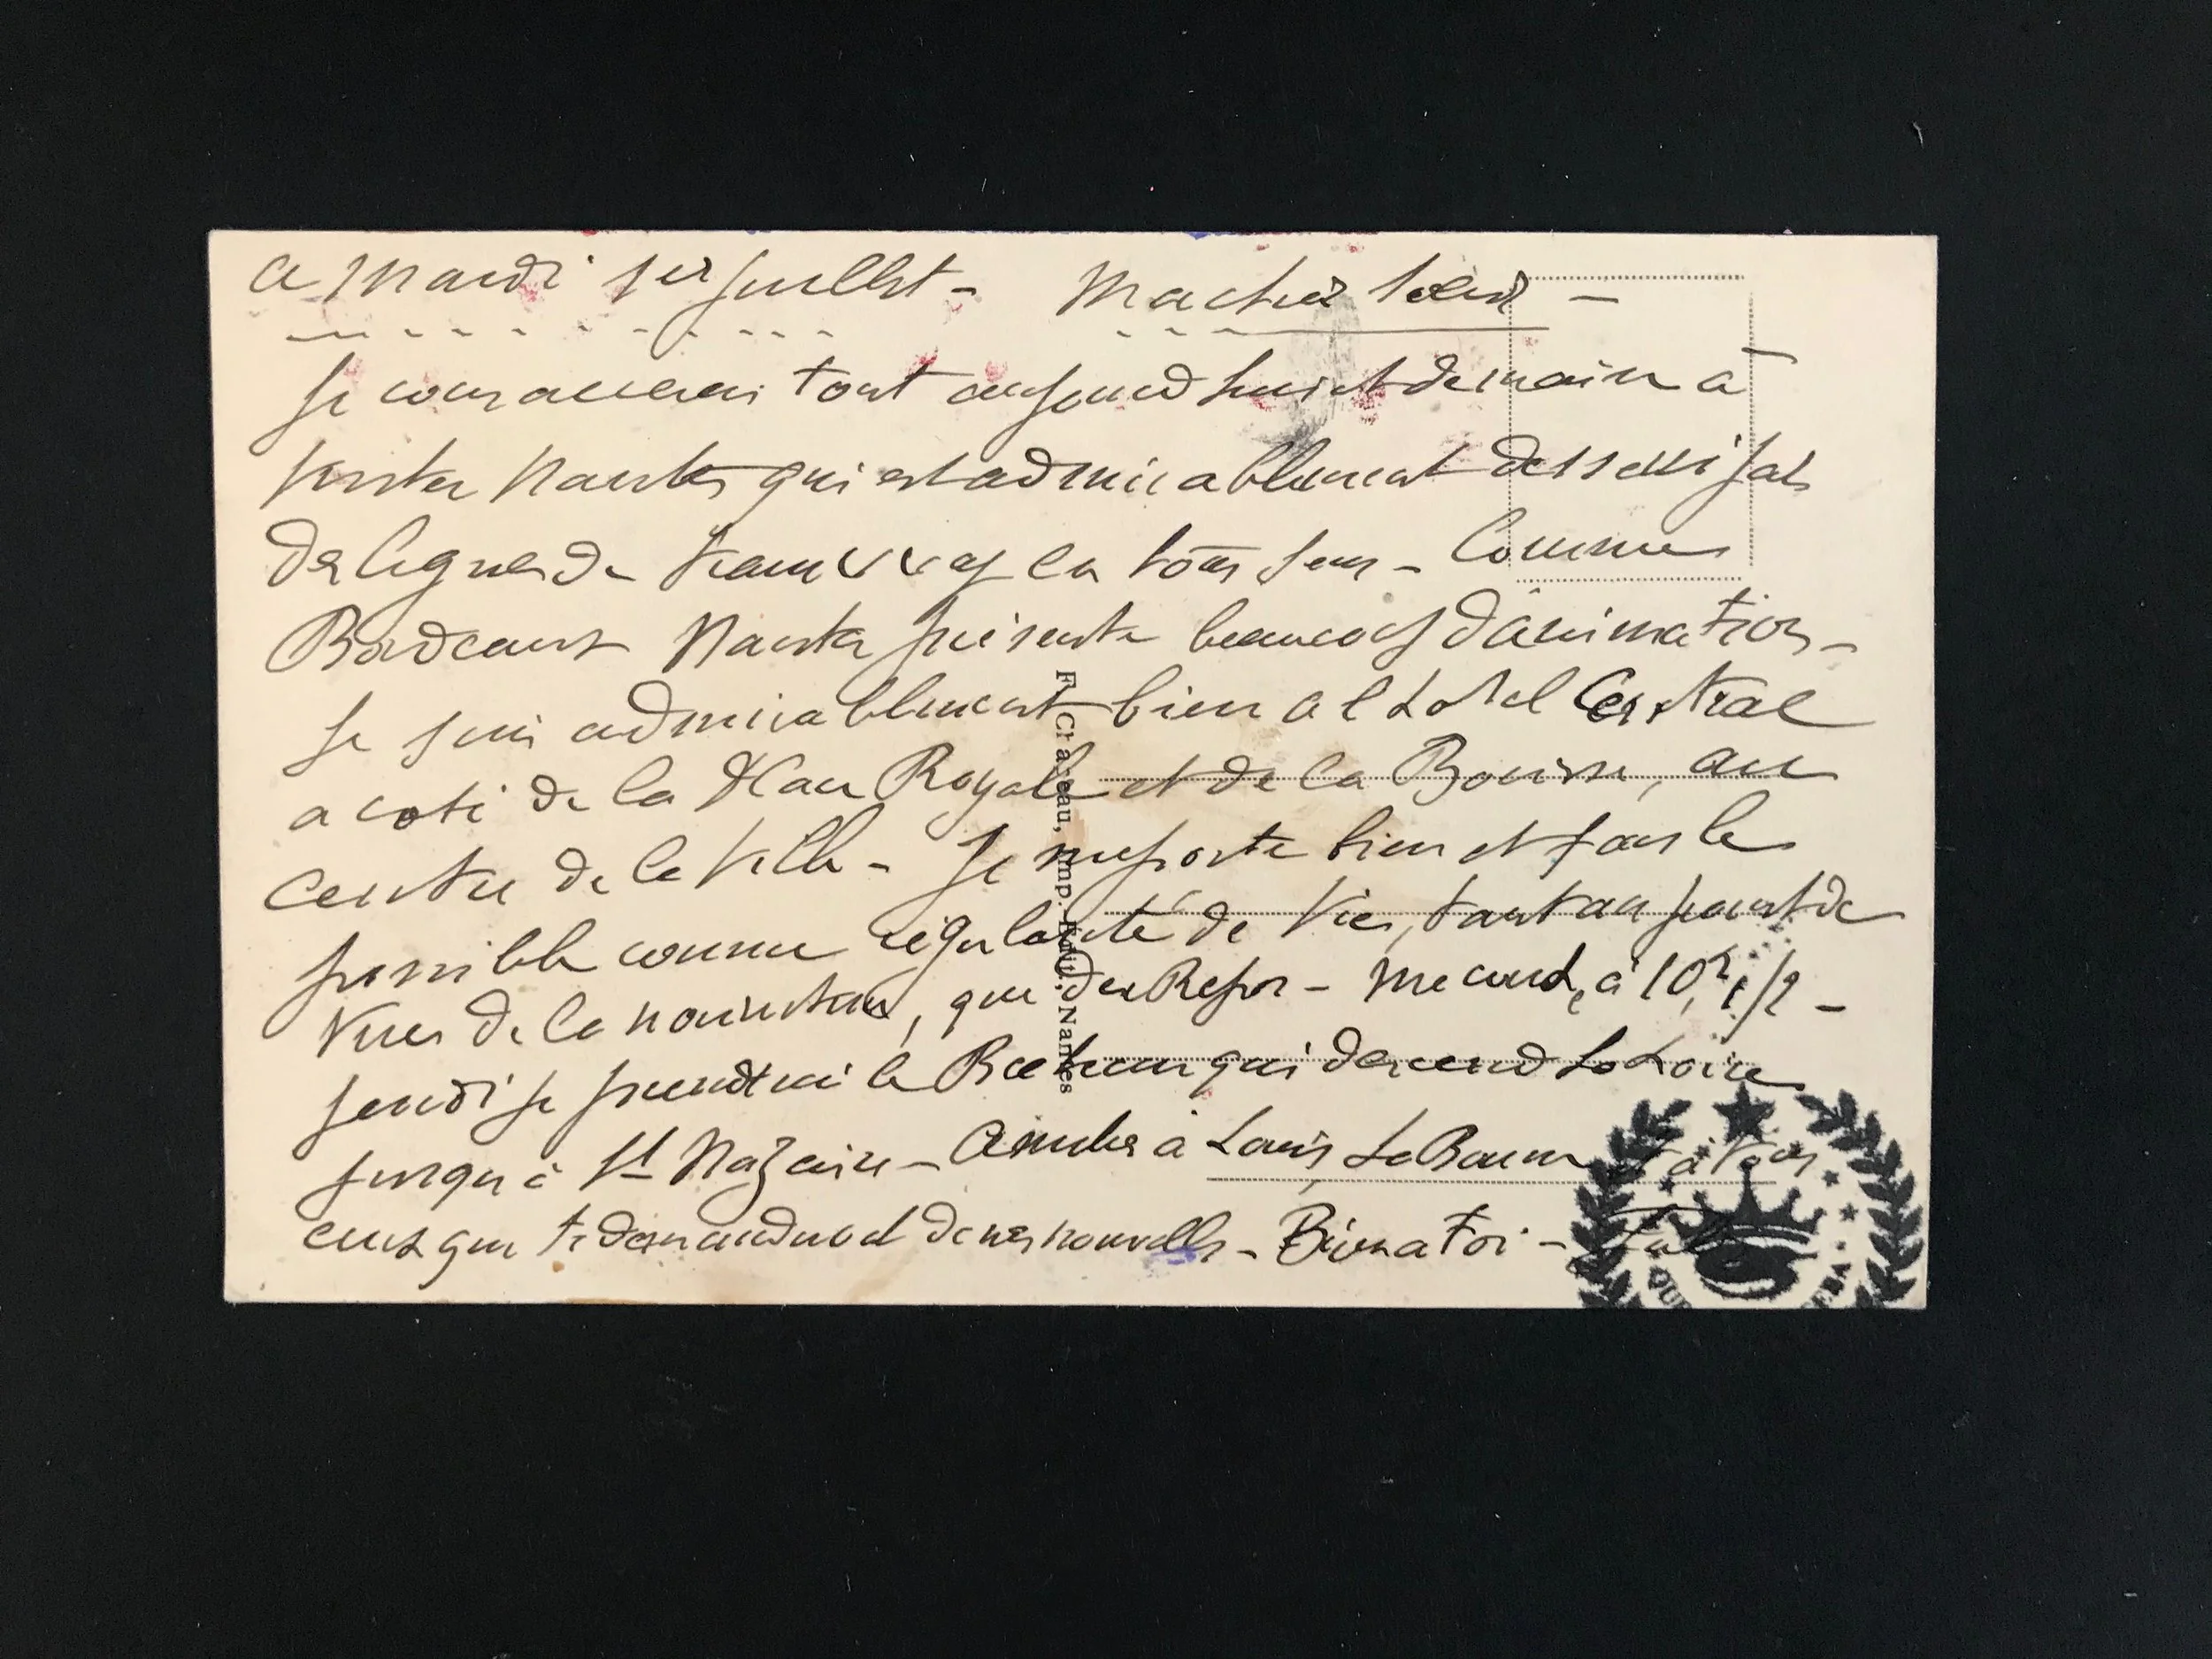 Ce Mardi 1er Juillet - Ma cher Soeur -
Je consacrerai tout aujourd'hui et demain à
visiter Nantes qui est admirablement desservi par
des lignes de tramways en tous sens - Comme
Bordeaux Nantes présente beaucoup d'animation -
Je suis admirablement bien a l hotel Central
a coté de la Place Royale et de la Bourse, au
centre de la Ville - Je me porte bien et fais le
possible comme régularité de Vie, tant au point de
Vue de la nourriture, que du Repos - Me couche à 10h 1/2 -
Jeudi je prendrai le Bateau qui descend La Loire
jusqu'à St Nazaire - Amitiés à Louis et à tous
ceux qui te demanderont de mes nouvelles - Bien a Toi -
F. Chareau, Imp. Edit., Nantes